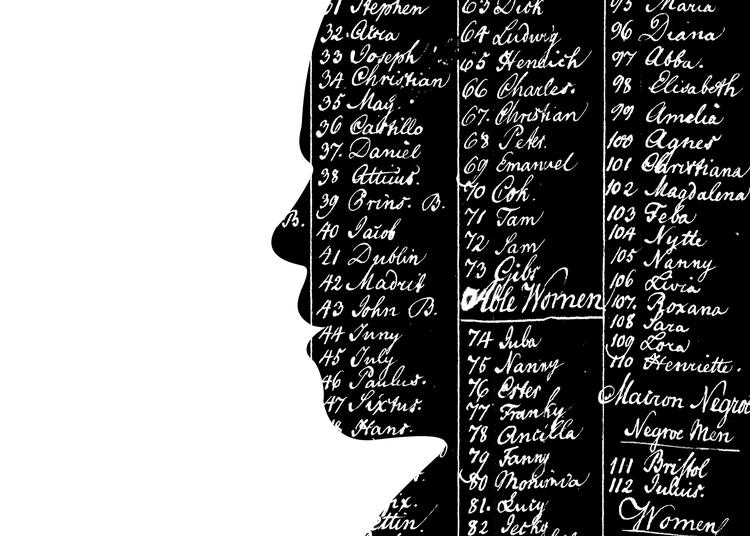 Stephen
32. Atta
33 Joseph
34 Christian
35 May.
36 Castillo
37. Daniel
38 Atticus.
39 Prins. B.
B.
40 Jacob
41 Dublin
42 Madrit
43 John B.
44 Juny
45 July
46 Paulus.
47 Sixtus.
Hans.
ix.
ettin.
63 Dick
64 Ludwig
65 Hendich
66 Charles.
67. Christian
68 Peter.
69 Emanuel
70 Cok.
71 Tam
72 Sam
73 Gibs
Able Women
74 Juba
75 Nanny
76 Ester
77 Franky
78 Ancilla
79 Fanny
80 Monimia
81. Lucy
82 Jecky
95 Maria
96 Diana
97 Abba.
98 Elisabeth
99 Amelia
100 Agnes
101 Christiana
102 Magdalena
103 Feba
104 Nytte
105 Nanny
106 Livia
107. Roxana
108 Sara
109 Lora
110 Henriette.
Mairon Negroe
Negroe Men
111 Bristol
112 Julius.
Women